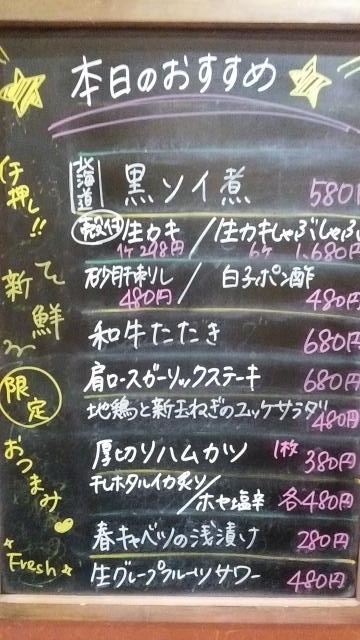 本日のおすすめ
イチ押し!!
北海道 黒ソイ煮 580円
殻付 生カキ / 生カキしゃぶしゃぶ
1ケ 298円 6ケ 1,680円
砂肝刺し / 白子ポン酢
480円 480円
新鮮
和牛たたき 680円
肩ロースガーリックステーキ 680円
限定
地鶏と新玉ねぎのユッケサラダ 480円
厚切りハムカツ 1枚 380円
おつまみ
干しホタルイカ炙り/
ホヤ塩辛 各480円
春キャベツの浅漬け 280円
Fresh
生グレープフルーツサワー 480円